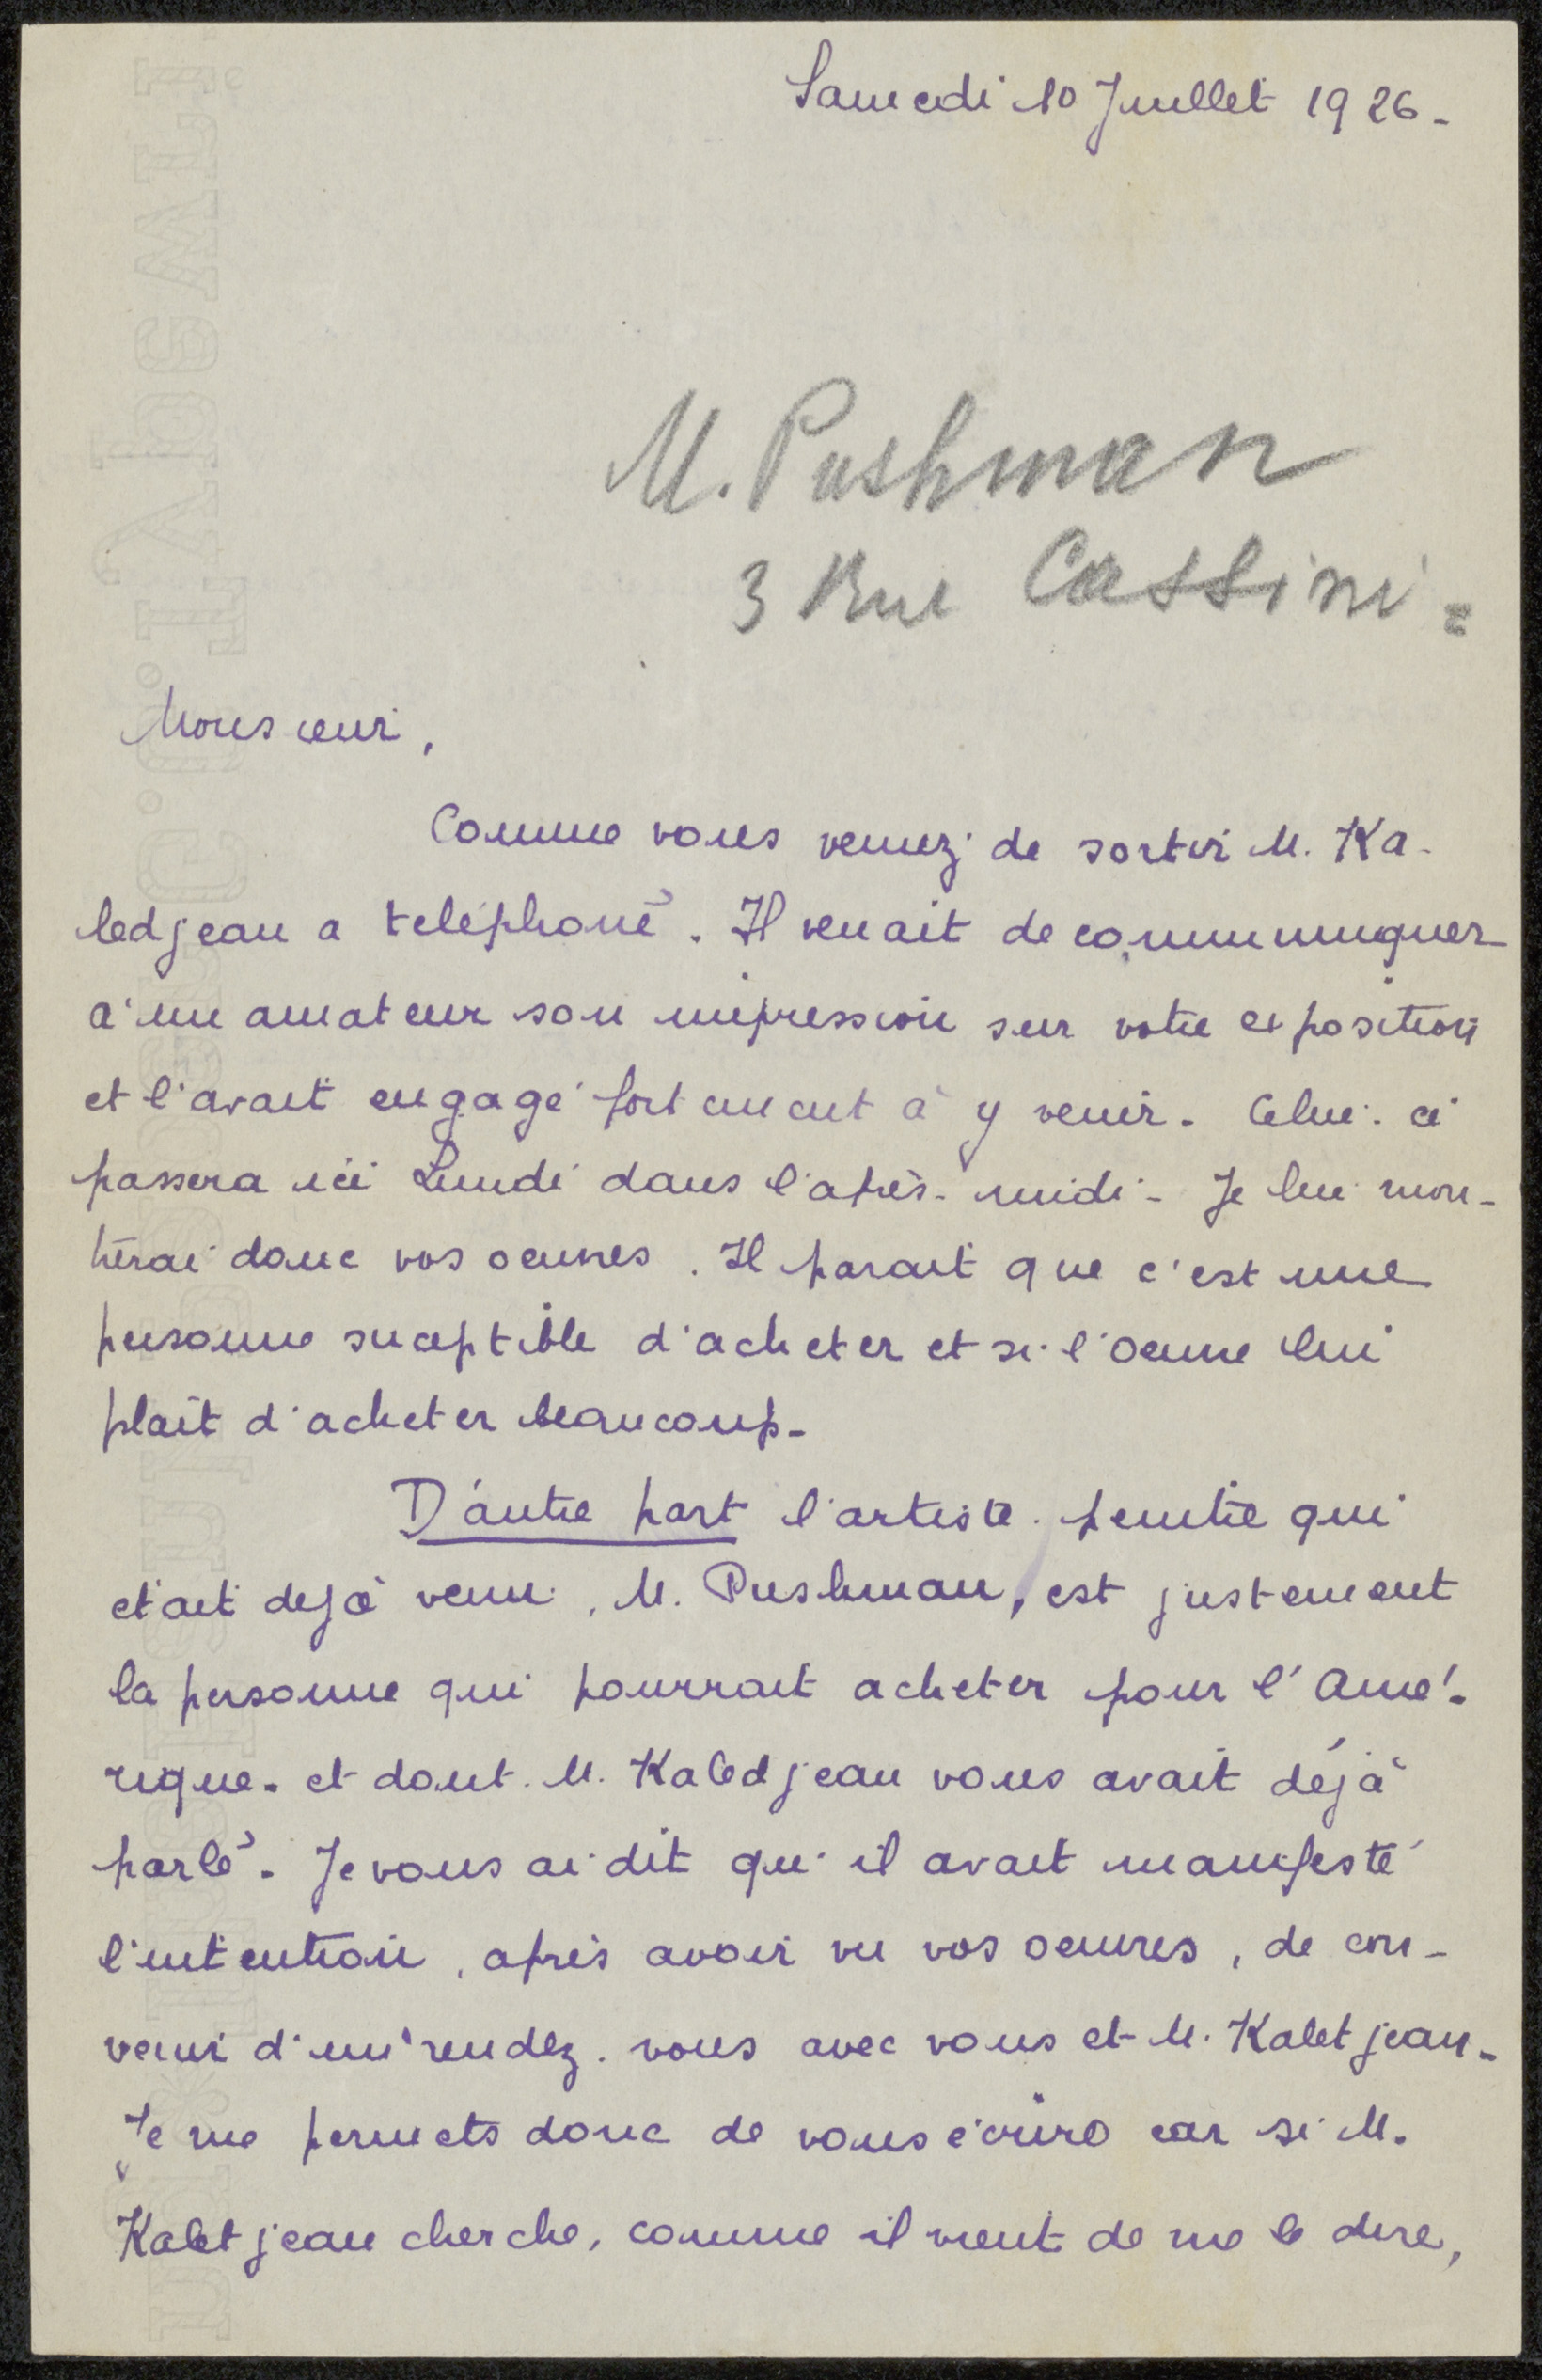 Samedi 10 Juillet 1926 -
M. Pushman
3 Rue Cassini =
Monsieur,
Comme vous venez de sortir M. Ka-
ledjean a téléphoné. Il venait de communiquer
à un amateur son impression sur votre exposition
et l'avait engagé fortement à y venir. Celui-ci
passera ici Lundi dans l'après-midi - Je lui mon-
trerai donc vos oeuvres. Il parait que c'est une
personne suceptible d'acheter et si l'oeuvre lui
plaît d'acheter beaucoup -
D'autre part l'artiste-peintre qui
etait dejà venu, M. Pushman, est justement
la personne qui pourrait acheter pour l'Amé-
rique - et dont M. Kaledjean vous avait déjà
parlé. Je vous ai dit qu'il avait manifesté
l'intention, après avoir vu vos oeuvres, de con-
venir d'un rendez-vous avec vous et M. Kaletjean -
Je me permets donc de vous écrire car si M.
Kaletjean cherche, comme il vient de me le dire,